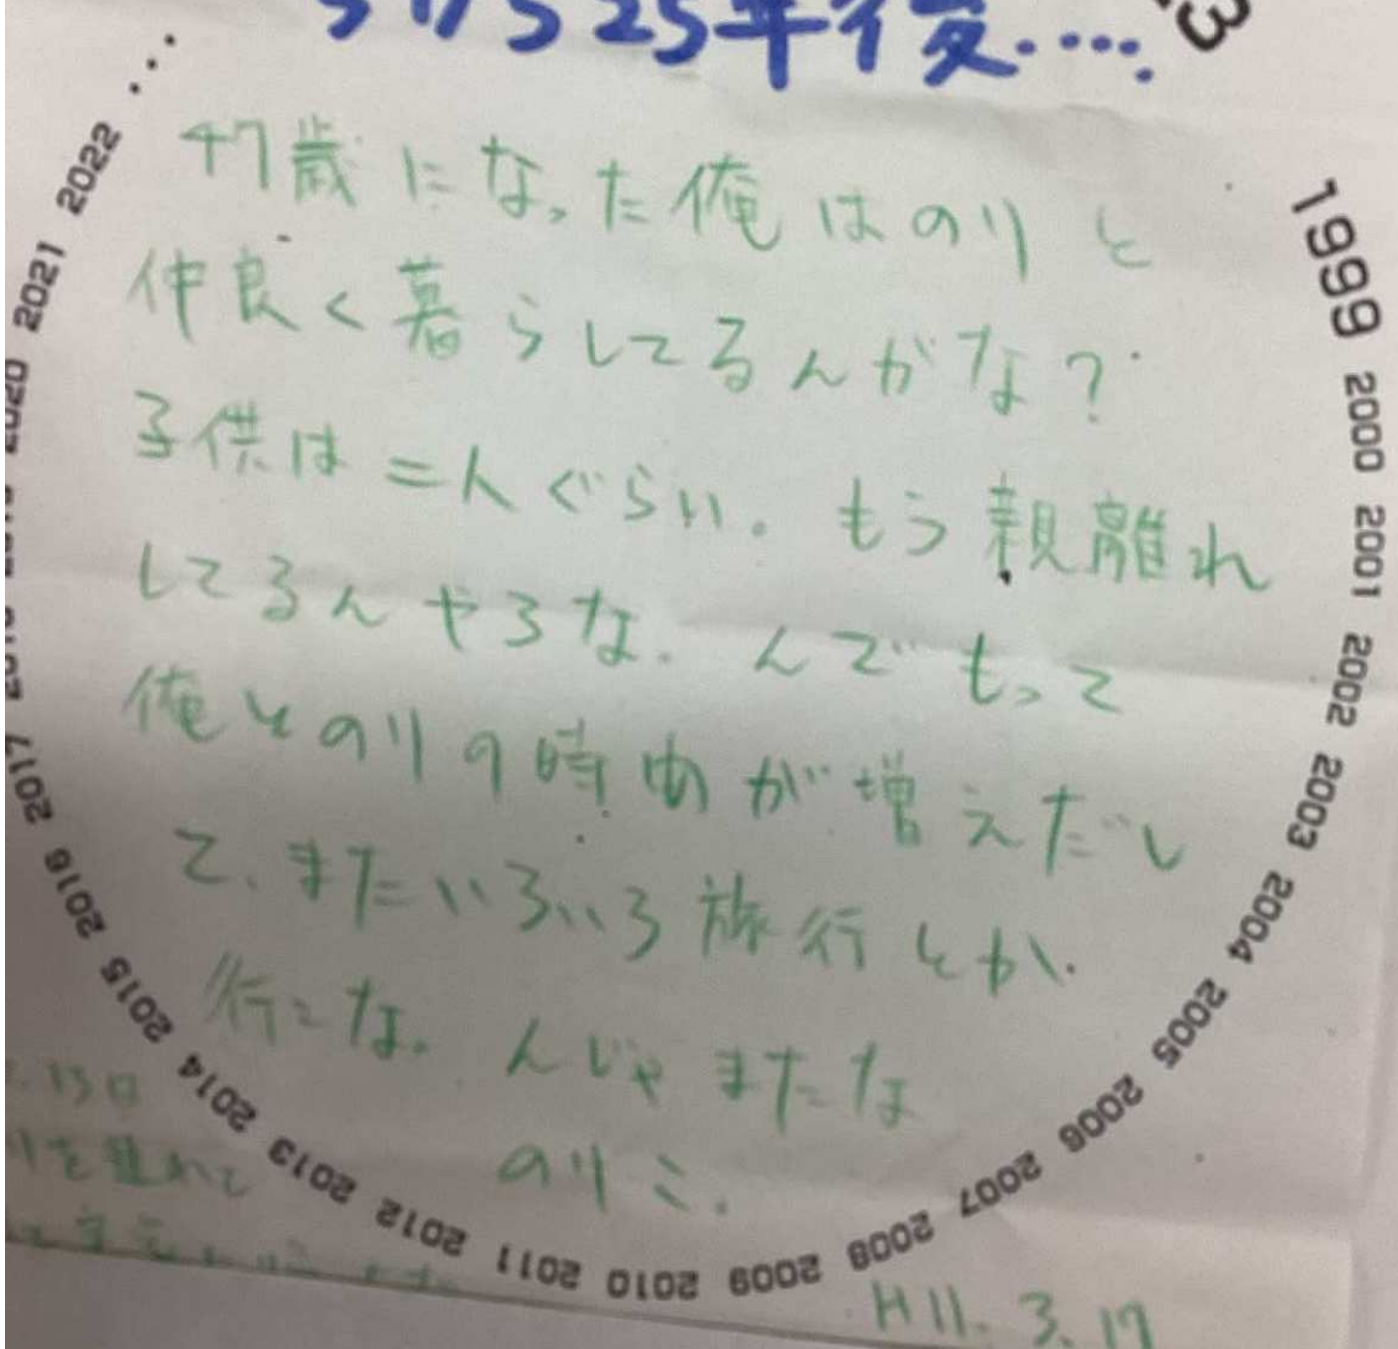 25年後.....
47歳になった俺はのりと
仲良く暮らしてるんかな?
子供は二人ぐらい。もう親離れ
してるんやろな. んでもって
俺とのりの時間が増えだし
て、またいろいろ旅行とか
行こな. んじゃまたな
のりこ.
H11. 3. 17
1999 2000 2001 2002 2003 2004 2005 2006 2007 2008 2009 2010 2011 2012 2013 2014 2015 2016 2017
2020 2021 2022 ...
13日